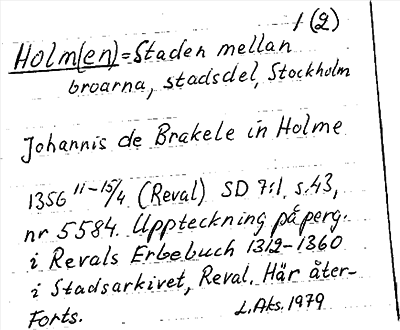 1(2)
Holm(en) = Staden mellan
broarna, stadsdel, Stockholm
Johannis de Brakele in Holme
1356 11-15/4 (Reval) SD 7:1, s.43,
nr 5584. Uppteckning på perg.
i Revals Erbebuch 1312-1360
i Stadsarkivet, Reval. Här åter-
Forts.
L.Aks. 1979